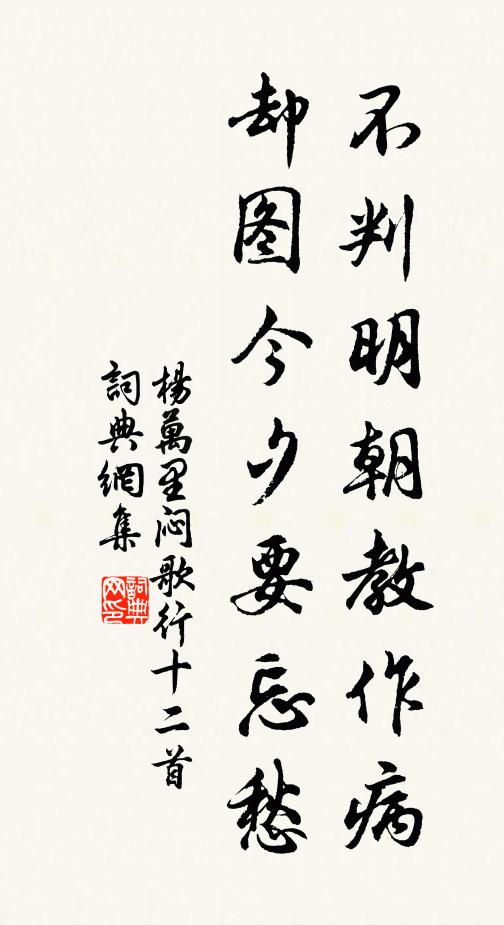 不判明朝教作病
却图今夕要忘愁
楊萬里闷歌行十二首
詞典網集
詞典網印